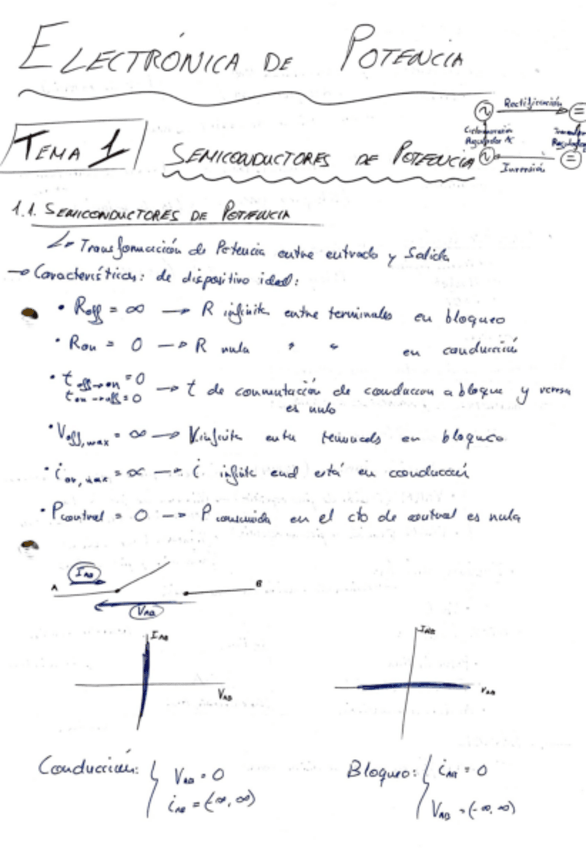 ELECTRÓNICA DE POTENCIA
Rectificación
Cicloconversión
Regulador AC
Inversión
TEMA 1 SEMICONDUCTORES DE POTENCIA
1.1. SEMICONDUCTORES DE POTENCIA
↳ Transformación de Potencia entre entrada y Salida
→ Características: de dispositivo ideal:
• Roff = ∞ → R infinita entre terminales en bloqueo
• Ron = 0 → R nula " " en conducción
• t off→on = 0
t on→off = 0 → t de conmutación de conduccion a bloqueo y versa
es nulo
• Voff,max = ∞ → V infinita entre terminales en bloqueo
• ion,max = ∞ → i infinita cnd está en cconducción
• Pcontrol = 0 → P consumida en el cto de control es nula
IAB
A B
VAB
IAB IAB
VAB VAB
Conducción: { VAB = 0
iAB = (-∞, ∞)
Bloqueo: { iAB = 0
VAB = (-∞, ∞)